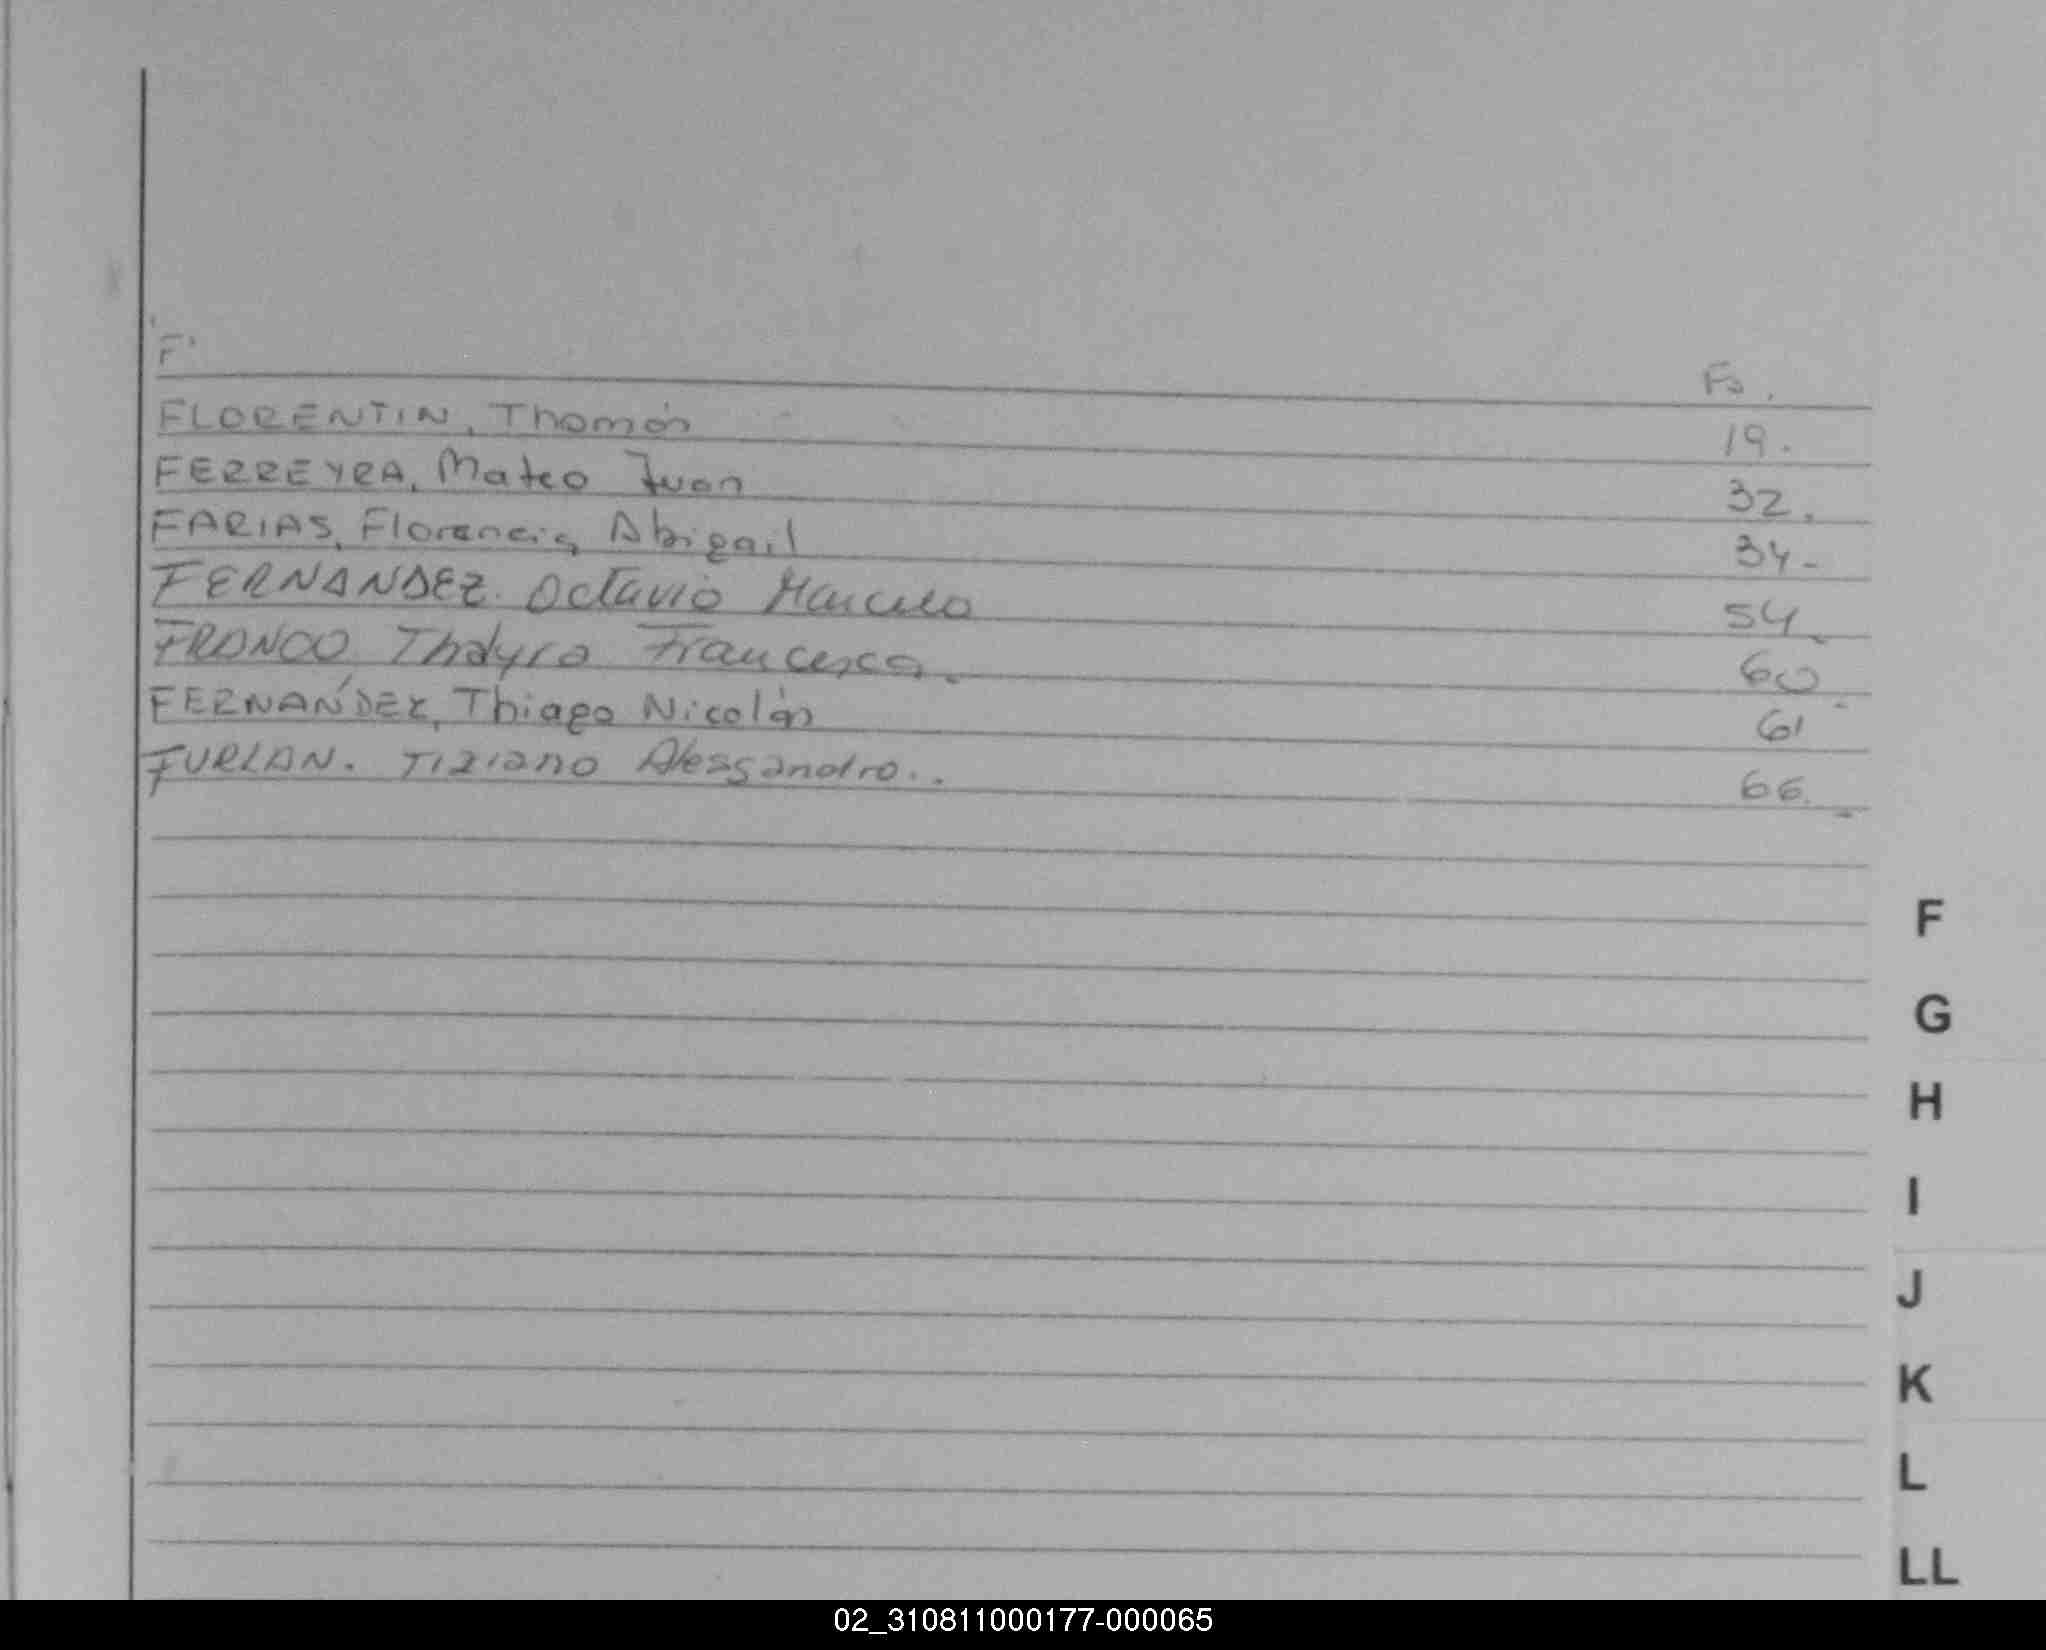 'F' Fo.
FLORENTIN, Thomás 19.
FERREYRA, Mateo Juan 32.
FARIAS, Florencia Abigail 34-
FERNANDEZ. Octavio Marcelo 54.
FRANCO Thalyra Francesca. 60
FERNANDEZ, Thiago Nicolás 61
FURLAN. Tiziano Alessandro.. 66.
F
G
H
I
J
K
L
LL
02_310811000177-000065